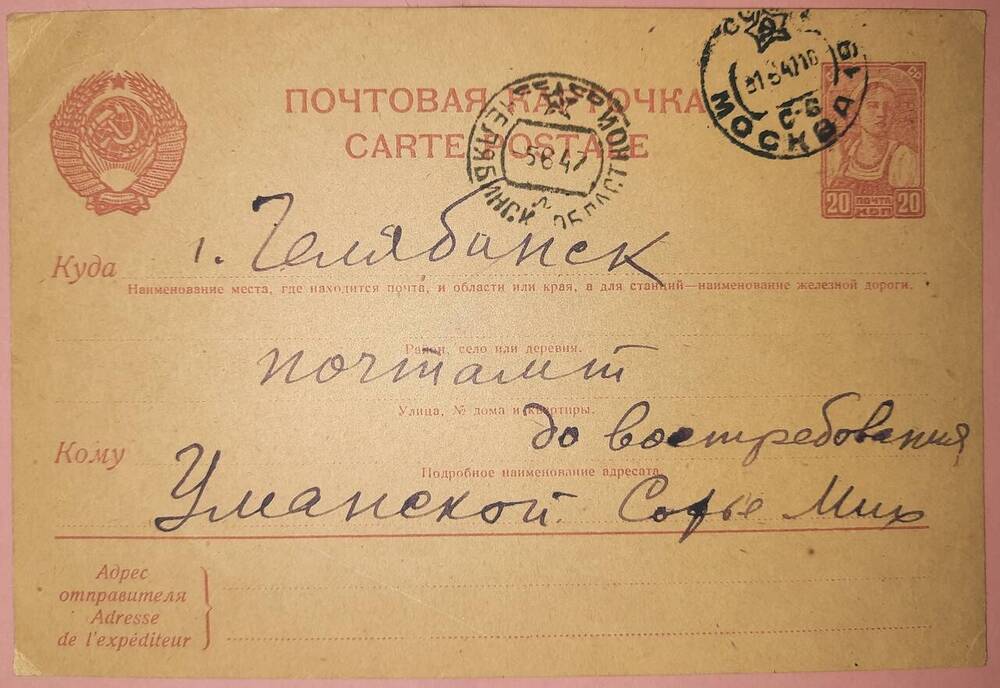 ПОЧТОВАЯ КАРТОЧКА
CARTE POSTALE
МОСКВА 19
С-Б
5 8 47
ЧЕЛЯБИНСК ОБЛАСТН
20 ПОЧТА 20
КОП
Куда г. Челябинск
Наименование места, где находится почта, и области или края, а для станций—наименование железной дороги.
Район, село или деревня.
почтамт
Улица, № дома и квартиры.
до востребования
Кому
Подробное наименование адресата
Уманской Софье Мих
Адрес
отправителя
Adresse
de l'expéditeur